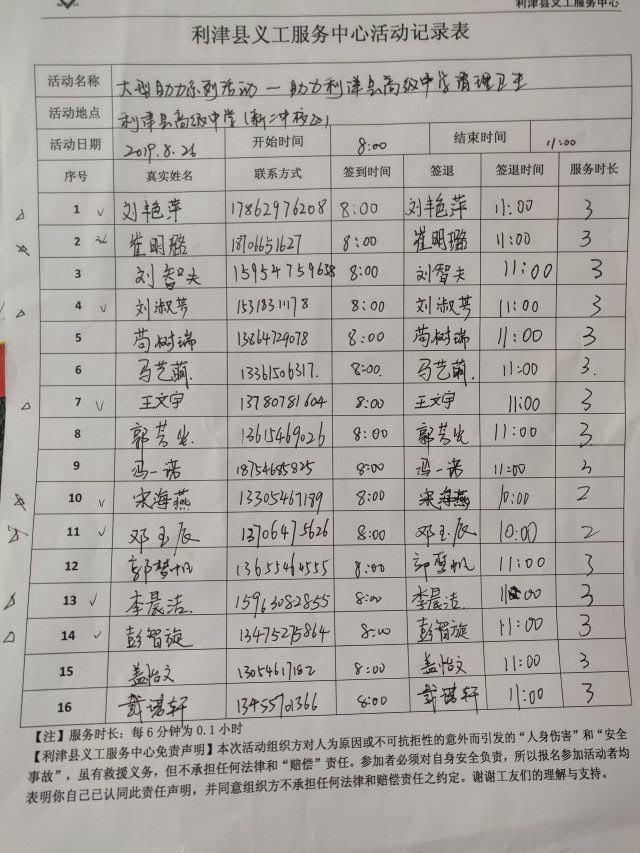 利津县义工服务中心
利津县义工服务中心活动记录表
活动名称 大型助力系列活动—助力利津县高级中学清理卫生
活动地点 利津县高级中学(新二中校区)
活动日期 2019.8.26 开始时间 8:00 结束时间 11:00
序号 真实姓名 联系方式 签到时间 签退 签退时间 服务时长
1 刘艳萍 17862976208 8:00 刘艳萍 11:00 3
2 崔明璐 18706651627 8:00 崔明璐 11:00 3
3 刘智夫 15954759638 8:00 刘智夫 11:00 3
4 刘淑芳 15318311178 8:00 刘淑芳 11:00 3
5 苟树瑞 13864729078 8:00 苟树瑞 11:00 3
6 马艺萌. 13361506317. 8:00. 马艺萌. 11:00 3.
7 王文宇 13780781604 8:00 王文宇 11:00 3
8 郭芳 13615469026 8:00 郭芳 11:00 3
9 冯一诺 18754685825 8:00 冯一诺 11:00 3
10 宋海燕 13305467189 8:00 宋海燕 10:00 2
11 邓玉辰 13706475626 8:00 邓玉辰 10:00 2
12 郭梦帆 13655464555 8:00 11:00 3
13 李晨洁. 15963082855 8:00 李晨洁. 11:00 3
14 彭智旋 13475275864 8:00 彭智旋 11:00 3
15 盖怡文 13054617182 8:00 盖怡文 11:00 3
16 戴诺轩 13455701366 8:00 戴诺轩 11:00 3
【注】服务时长：每6分钟为0.1小时
【利津县义工服务中心免责声明】本次活动组织方对人为原因或不可抗拒性的意外而引发的“人身伤害”和“安全
事故”，虽有救援义务，但不承担任何法律和“赔偿”责任。参加者必须对自身安全负责，所以报名参加活动者均
表明你自己已认同此责任声明，并同意组织方不承担任何法律和赔偿责任之约定。谢谢工友们的理解与支持。